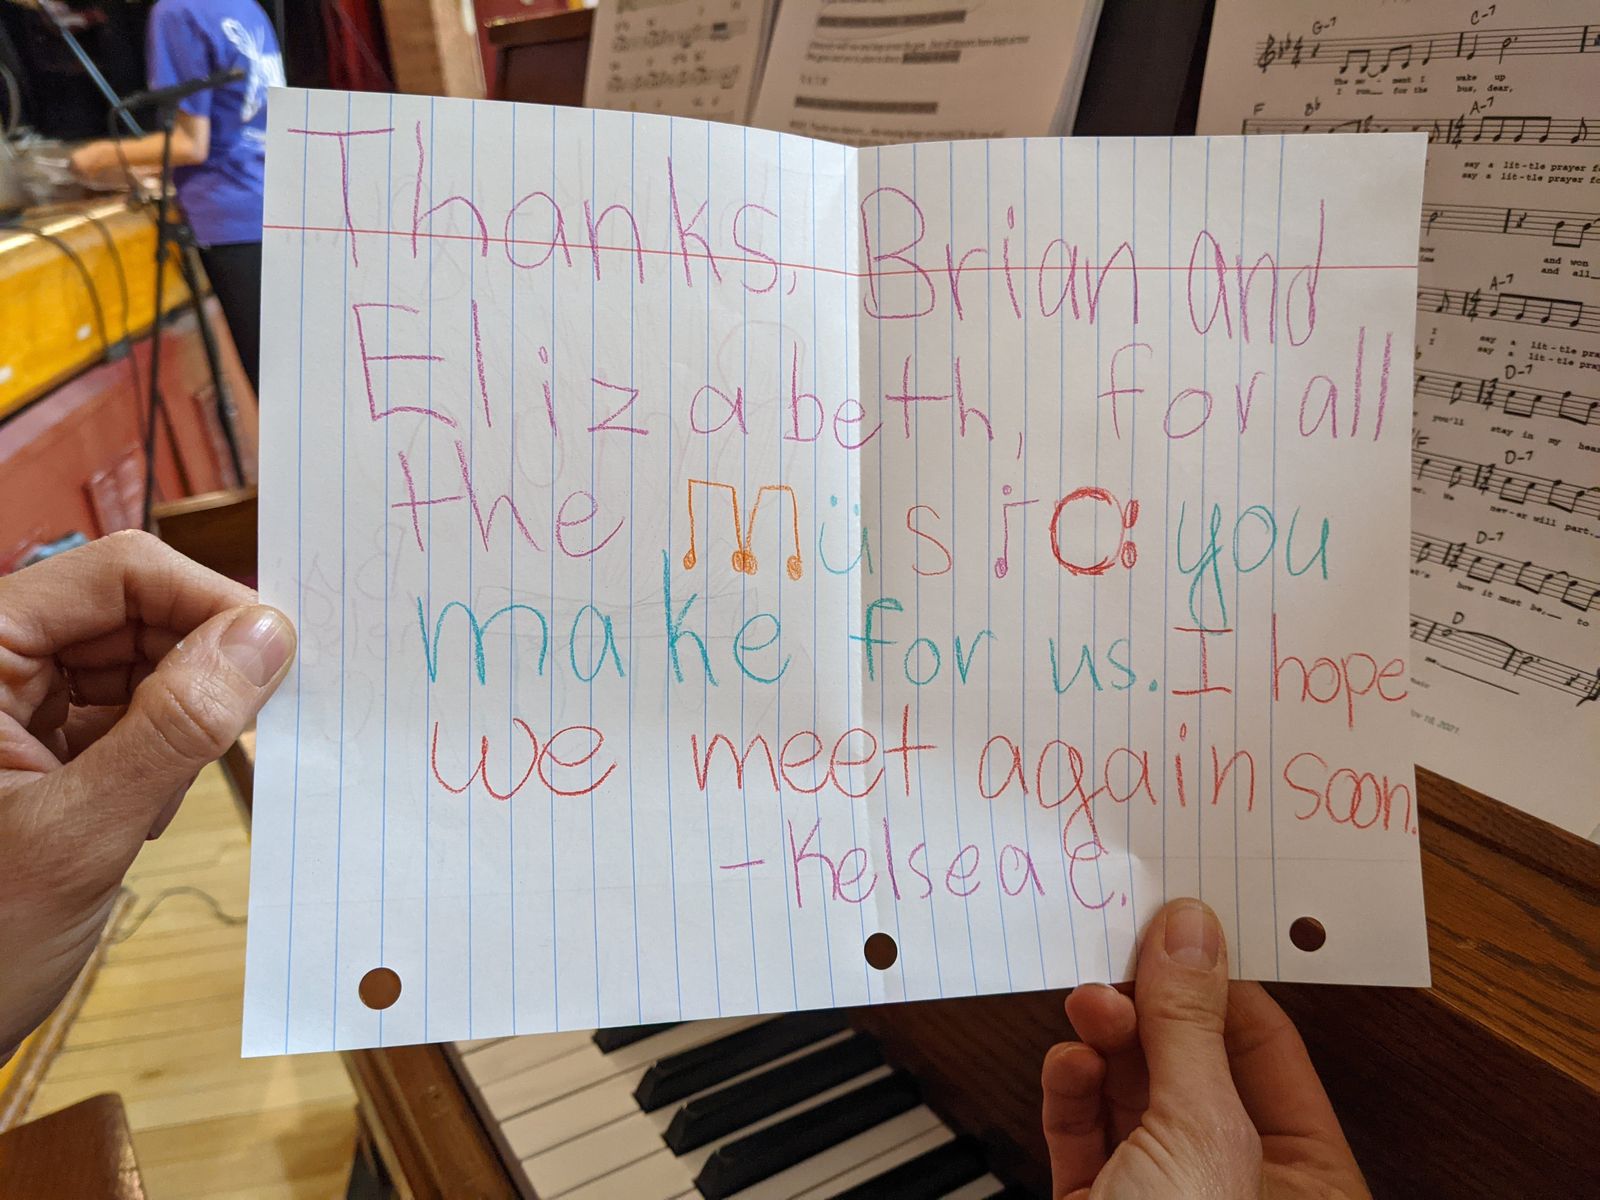 Thanks, Brian and
Elizabeth, for all
the müsic you
make for us. I hope
we meet again soon.
- Kelsea C.
G-7
C-7
the mo - ment I wake up
I run for the bus, dear,
F
Bb
A-7
say a lit-tle prayer fo
say a lit-tle prayer fo
and won
and all
A-7
I say a lit-tle pra
I say a lit-tle pra
D-7
you'll stay in my hea
/F
D-7
We nev-er will part.
D-7
how it must be, to
D
me